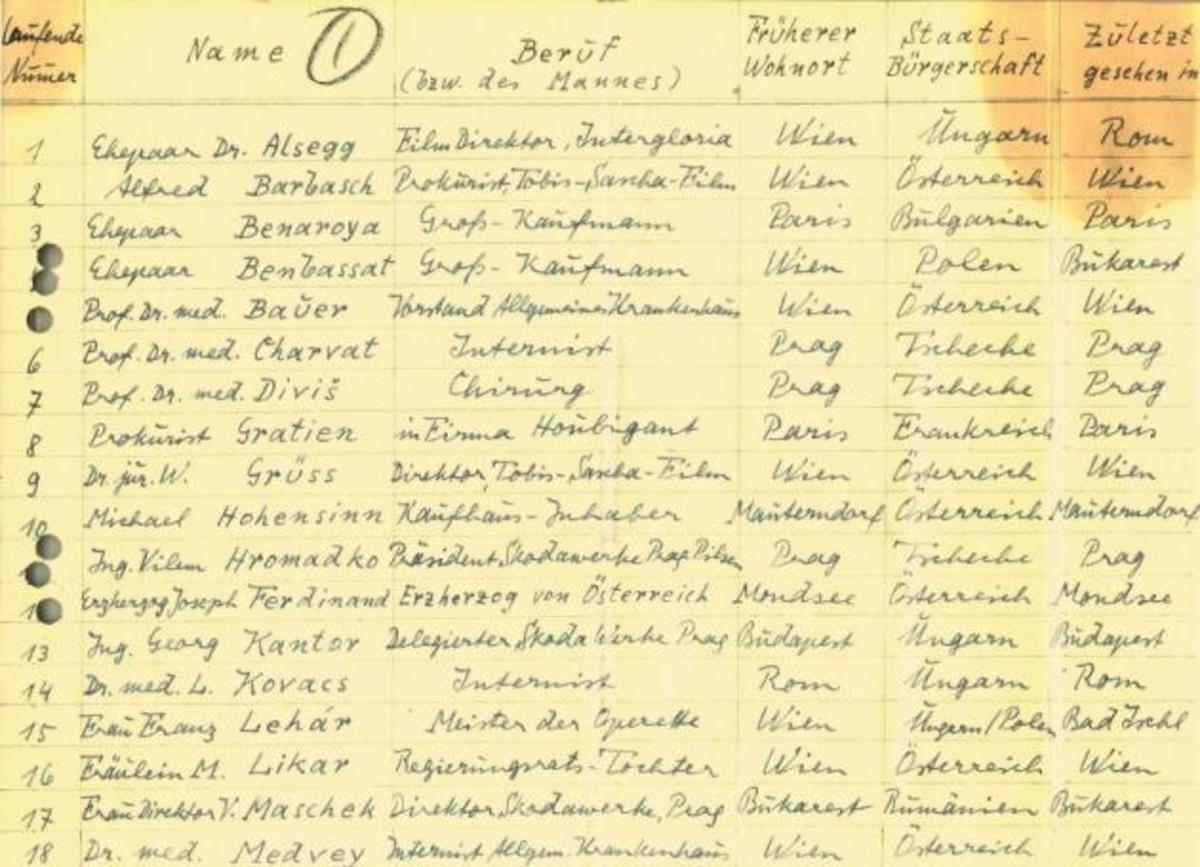 Laufende Numer Name 1 Beruf (bzw. des Mannes) Früherer Wohnort Staats-Bürgerschaft Zuletzt gesehen in
1 Ehepaar Dr. Alsegg Film Direktor, Intergloria Wien Ungarn Rom
2 Alfred Barbasch Prokurist, Tobis-Sascha-Film Wien Österreich Wien
3 Ehepaar Benaroya Groß-Kaufmann Paris Bulgarien Paris
Ehepaar Benbassat Groß-Kaufmann Wien Polen Bukarest
Prof. Dr. med. Bauer Vorstand Allgemeines Krankenhaus Wien Österreich Wien
6 Prof. Dr. med. Charvat Internist Prag Tscheche Prag
7 Prof. Dr. med. Diviš Chirurg Prag Tscheche Prag
8 Prokurist Gratien in Firma Houbigant Paris Frankreich Paris
9 Dr. jur. W. Grüss Direktor, Tobis-Sascha-Film Wien Österreich Wien
10 Michael Hohensinn Kaufhaus-Inhaber Mauterndorf Österreich Mauterndorf
Ing. Vilem Hromadko Präsident, Skodawerke Prag Pilsen Prag Tscheche Prag
1 Erzherzog Joseph Ferdinand Erzherzog von Österreich Mondsee Österreich Mondsee
13 Ing. Georg Kantor Delegierter, Skoda Werke Prag Budapest Ungarn Budapest
14 Dr. med. L. Kovacs Internist Rom Ungarn Rom
15 Frau Franz Lehár Meister der Operette Wien Ungarn/Polen Bad Ischl
16 Fräulein M. Likar Regierungsrats-Tochter Wien Österreich Wien
17 Frau Direktor V. Maschek Direktor, Skodawerke, Prag Bukarest Rumänien Bukarest
18 Dr. med. Medvey Internist Allgem. Krankenhaus Wien Österreich Wien